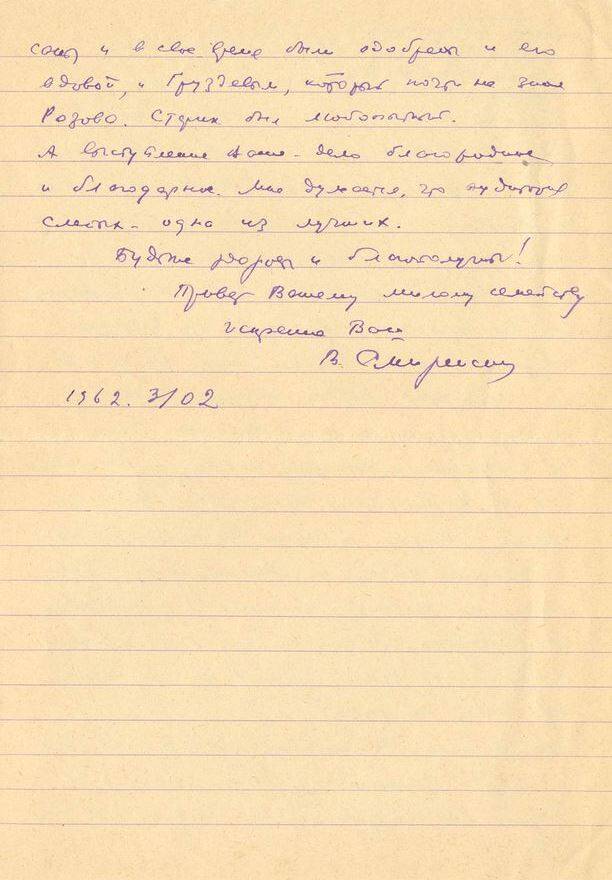 и в свое время были одобрены и его
вдовой, и Груздевым, который почти не знал
Розова. Старик был любопытный.
А выступление Ваше - дело благородное
и благодарное. Мне думается, что
- одна из лучших.
Будьте здоровы и благополучны!
Привет Вашему милому семейству
Искренно Ваш
В.
1962. 3/02